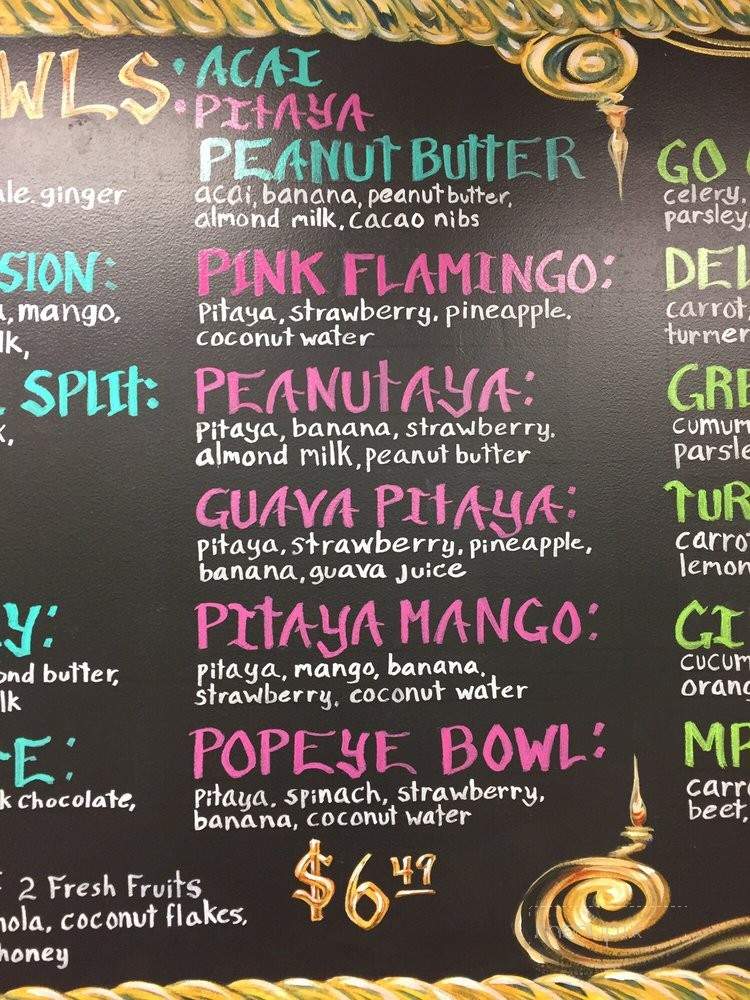 WLS: ACAI
PITAYA
PEANUT BUTTER
acai, banana, peanut butter,
almond milk, cacao nibs
PINK FLAMINGO:
Pitaya, strawberry, pineapple,
coconut water
PEANUTAYA:
Pitaya, banana, strawberry,
almond milk, peanut butter
GUAVA PITAYA:
pitaya, strawberry, pineapple,
banana, guava juice
PITAYA MANGO:
pitaya, mango, banana,
strawberry, coconut water
POPEYE BOWL:
Pitaya, spinach, strawberry,
banana, coconut water
$6 49
ale, ginger
SION:
a, mango,
lk,
SPLIT:
k,
Y:
ond butter,
lk
TE:
k chocolate,
F 2 Fresh Fruits
nola, coconut flakes,
honey
GO
celery,
parsley,
DEL
carrot,
turmer
GRE
cumum
parsle
TUR
carro
lemon
GI
cucum
orang
MP
carro
beet,